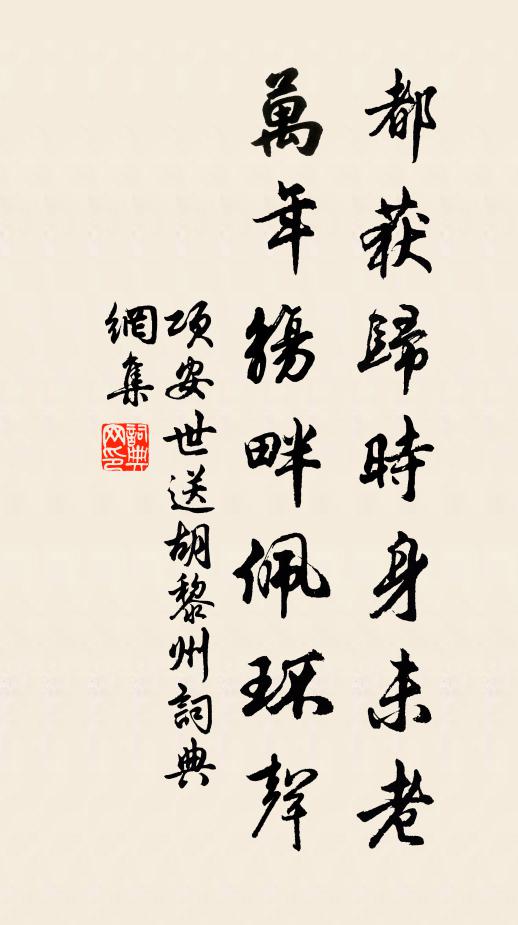 都荻歸時身未老
萬年觴畔佩環聲
項安世送胡黎州詞典
網集
詞典
网印